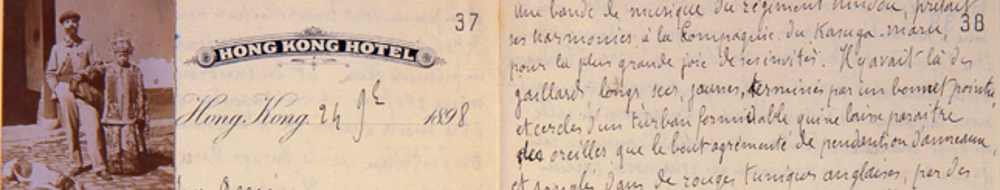 37
HONG KONG HOTEL
Hong Kong, 24 9e 1898
38
Une bande de musique du régiment hindou, prêtait
ses harmonies à la Compagnie du Kasuga-maru,
pour la plus grande joie des invités. Il y avait là des
gaillards longs, secs, jaunes, terminés par un bonnet pointu,
et cerclés d'un turban formidable qui ne laisse paraître
des oreilles que le bout agrémenté de pendentifs ou d'anneaux,
et sanglés dans de rouges tuniques anglaises, par des